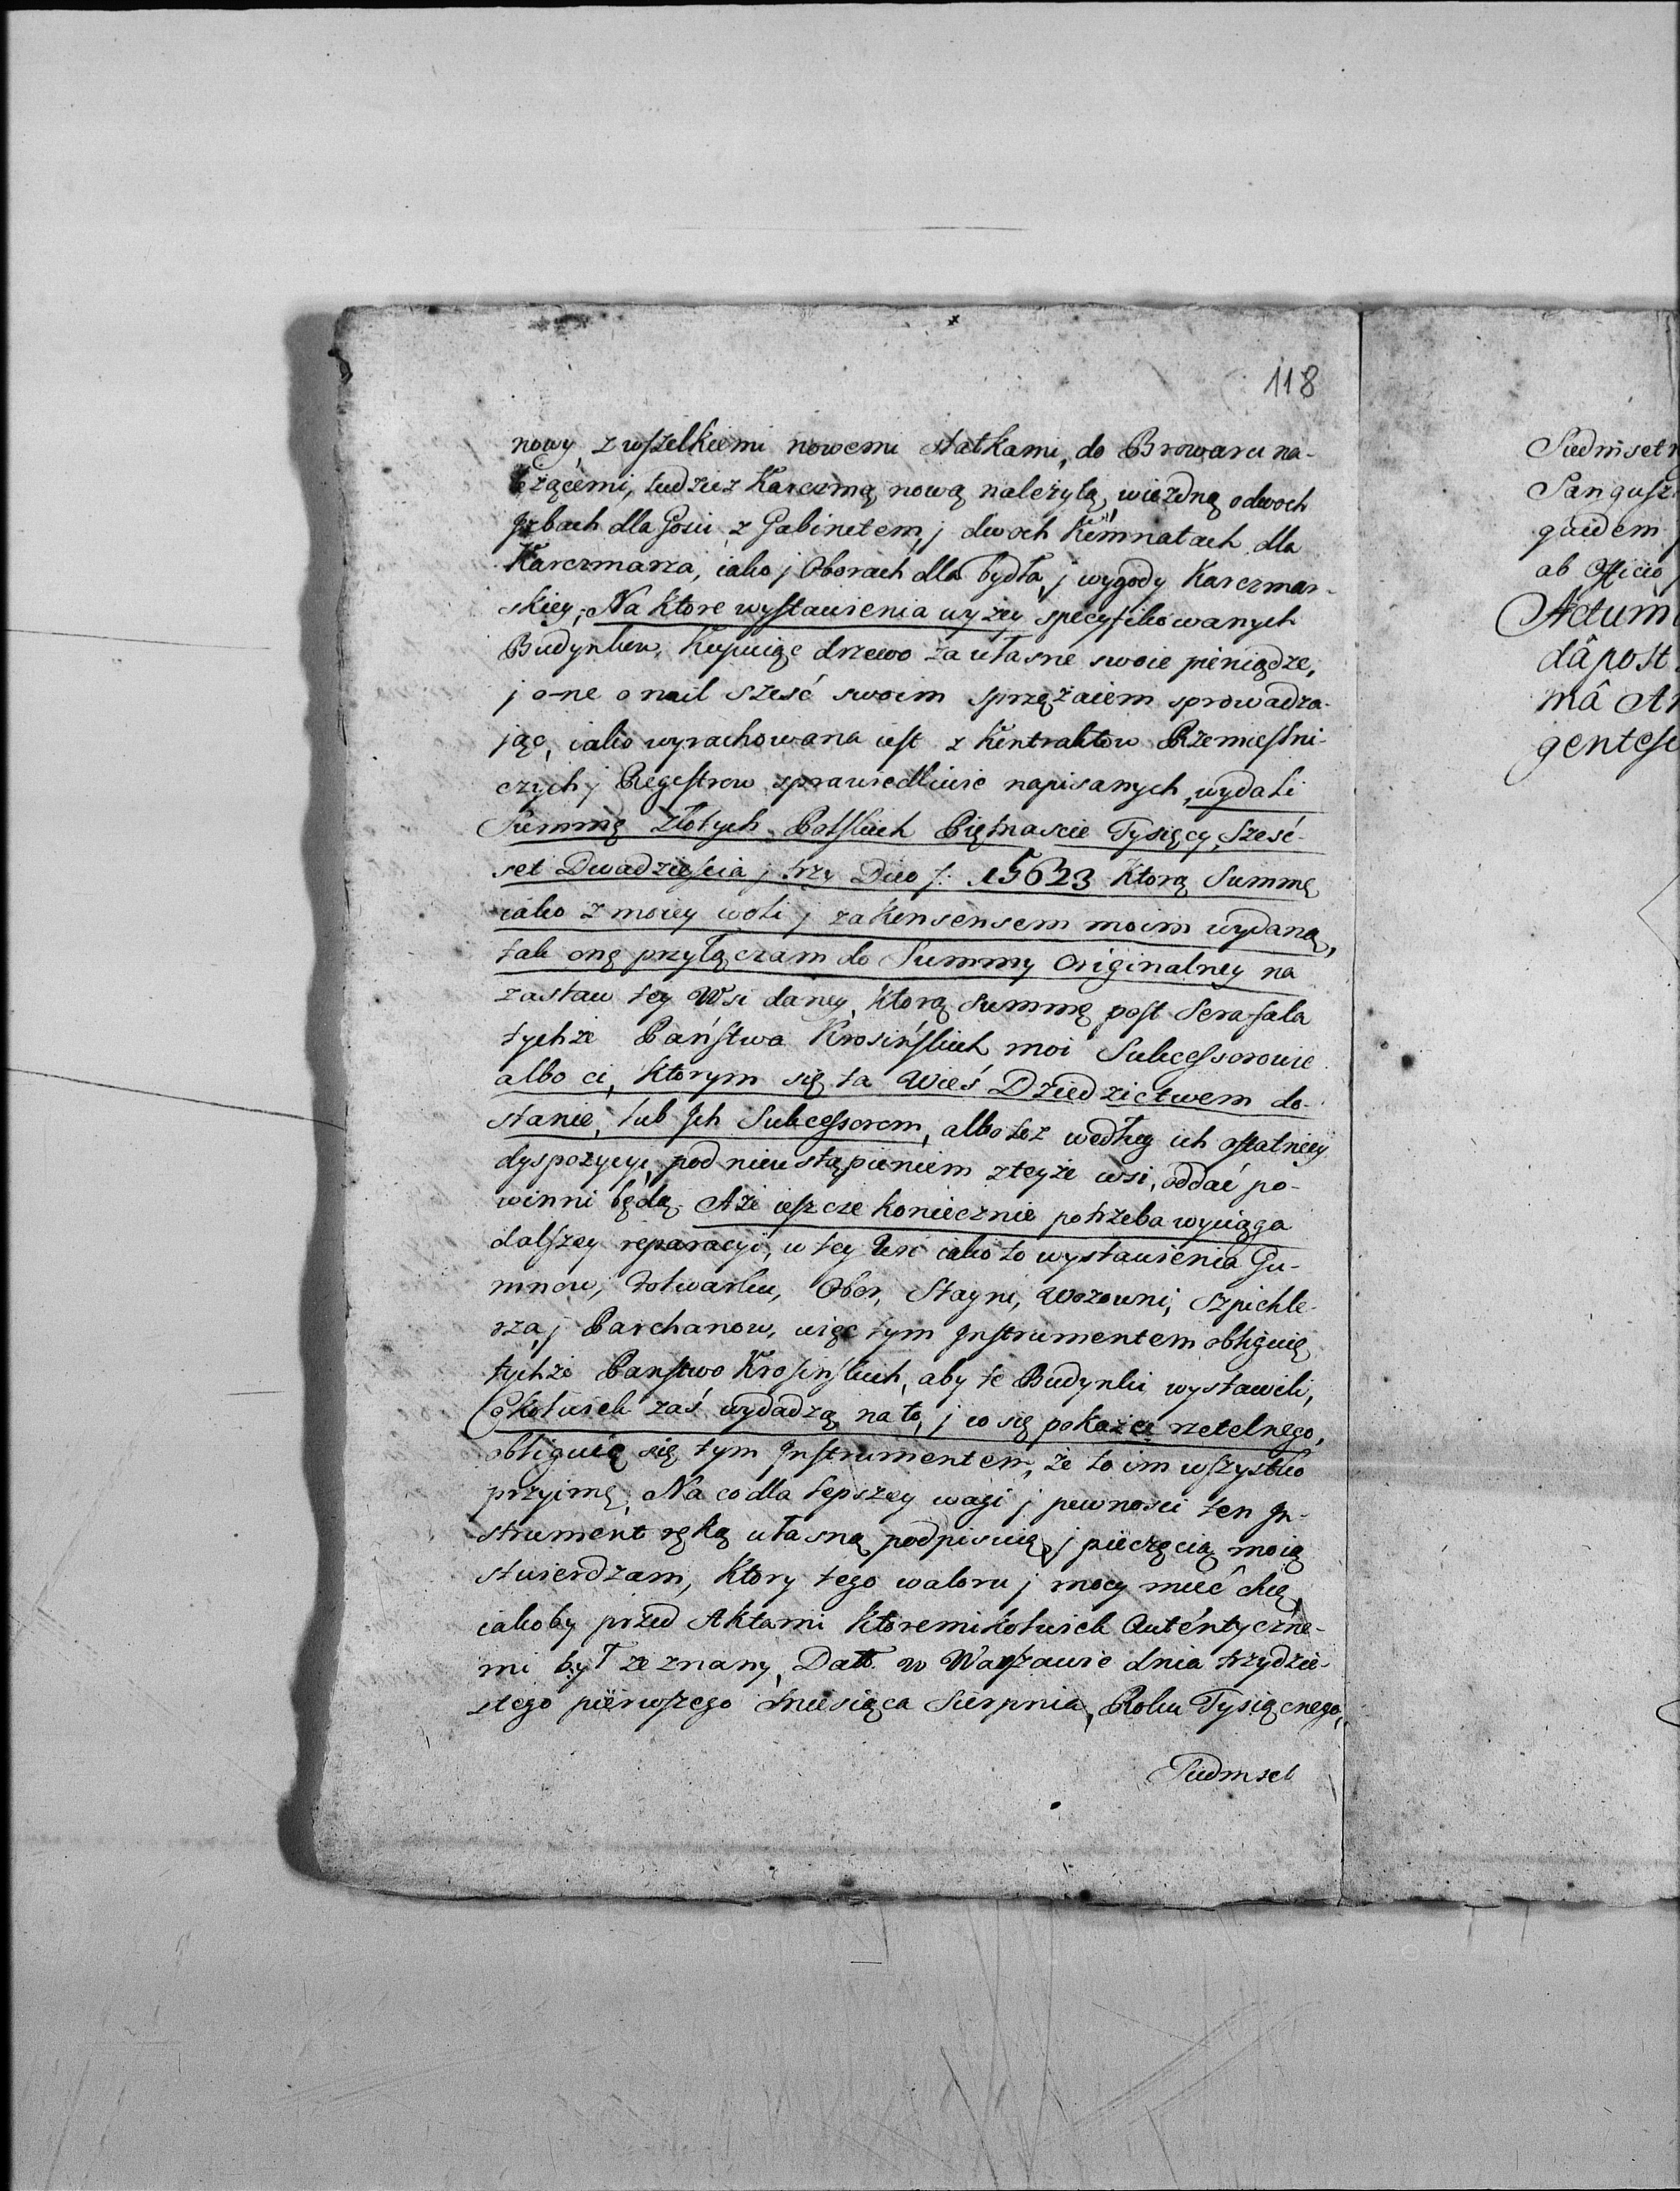 118
nowy, z wszelkiemi nowemi statkami, do Browaru na-
leżącemi, tudziez Karczmą nową należytą, wiezdną o dwoch
Jzbach dla Gosci z Gabinetem, j dwoch Kómnatach dla
Karczmarza, iako j Oborach dla bydła, j wygody Karczmar-
skiey, Na ktore wystawienia wyżey specyfikowanych
Budynkow, Kupuiąc drzewo za własne swoie pieniądze,
j o-ne o mil sześć swoim sprzężaiem sprowadza-
jąc, iako wyrachowana iest z Kontraktow Rzemieslni-
czych j Regestrow sprawiedliwie napisanych, wydali
Summę Złotych Polskich Piętnascie Tysięcy, Sześć-
set Dwadziescia j trzy Dico f: 15623 Ktorą Summę
iako z moiey woli j za Konsensem moim wydaną,
tak onę przyłączam do Summy Originalney na
zastaw tey Wsi daney, Ktorą Summę post Sera fala
tychże Państwa Krosińskich moi Sukcessorowie
albo ci, Ktorym się ta Wieś Dziedzictwem do-
stanie, lub Jch Sukcessorom, albo tez według ich ostatniey
dyspozycyi, pod nieustąpieniem z teyże wsi, oddać po-
winni będą. Aże ieszcze koniecznie potrzeba wyciąga
dalszey reparacyi, w tey Wsi iako to wystawienia Gu-
mnow, Folwarku, Obor, Stayni, Wozowni, Szpichle-
rza, j Parchanow, więc tym Jnstrumentem obliguię
tychże Panstwo Krosinskich, aby te Budynki wystawili,
Cokolwiek zaś wydadzą na to, j co się pokaże rzetelnego,
obliguię się tym Jnstrumentem, że to im wszystko
przyimę, Na co dla lepszey wagi j pewnosci ten Jn-
strument ręką własną podpisuię j pieczęcią moią
stwierdzam, Ktory tego waloru j mocy mieć chcę,
iakoby przed Aktami Ktoremikolwiek Auténtyczne-
mi był zeznany, Datt. w Warszawie dnia trzydzie-
stego pierwszego Miesiąca Sierpnia, Roku Tysiącnego,
Siedmset
Siedmset
Sangusz
quidem
ab Officio
Actum
dâ post
mâ A
gentesi